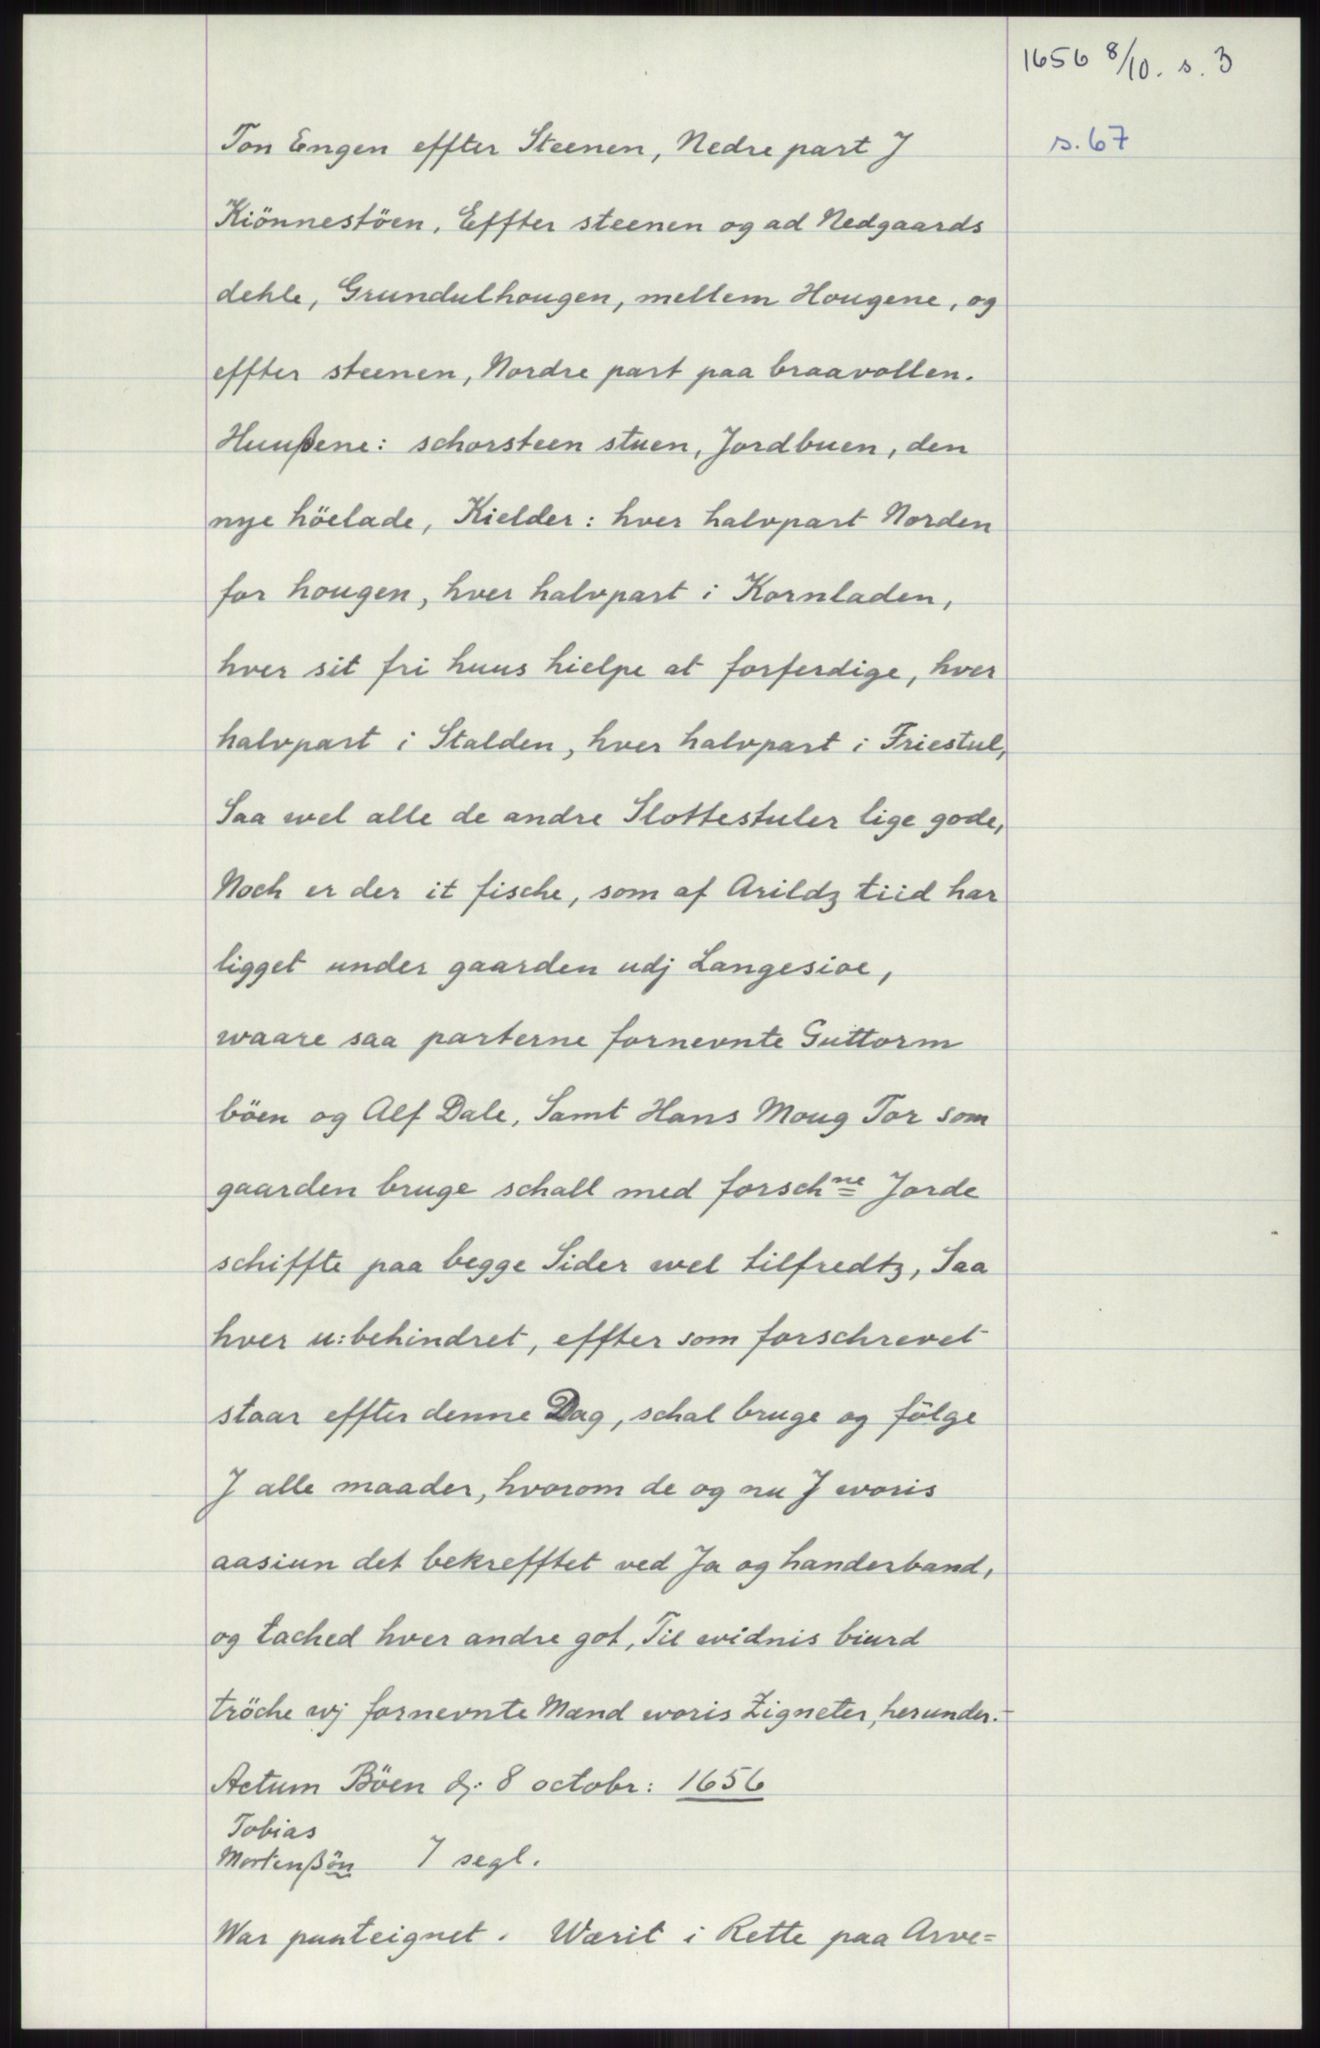 1656 8/10. s. 3
s. 67
Ton Engen effter Steenen, Nedre part J
Kiönnestöen, Effter steenen og ad Nedgaards
dehle, Grundulhougen, mellem Hougene, og
effter steenen, Nordre part paa braavollen.
Huußene: schorsteen stuen, Jordbuen, den
nye höelade, Kielder: hver halvpart Norden
for hougen, hver halvpart i Kornladen,
hver sit fri huus hielpe at forferdige, hver
halvpart i Stalden, hver halvpart i Friestul,
Saa wel alle de andre Slottestuler lige gode,
Noch er der it fische, som af Arildz tiid har
ligget under gaarden udj Langesioe,
waare saa parterne fornevnte Guttorm
böen og Alf Dale, Samt Hans Moug Tor som
gaarden bruge schall med forschne Jorde
schiffte paa begge Sider wel tilfredtz, Saa
hver u:behindret, effter som forschrevet
staar effter denne Dag, schal bruge og fölge
J alle maader, hvorom de og nu J woris
aasiun det bekrefftet ved Ja og handerband,
og tached hver andre got, Til widnis biurd
tröche wj fornevnte Mænd woris Zigneter, herunder.-
Actum Böen dj: 8 octobr: 1656
Tobias
Mortenßön 7 segl.
War punteignet. Wærit i Rette paa Arve=